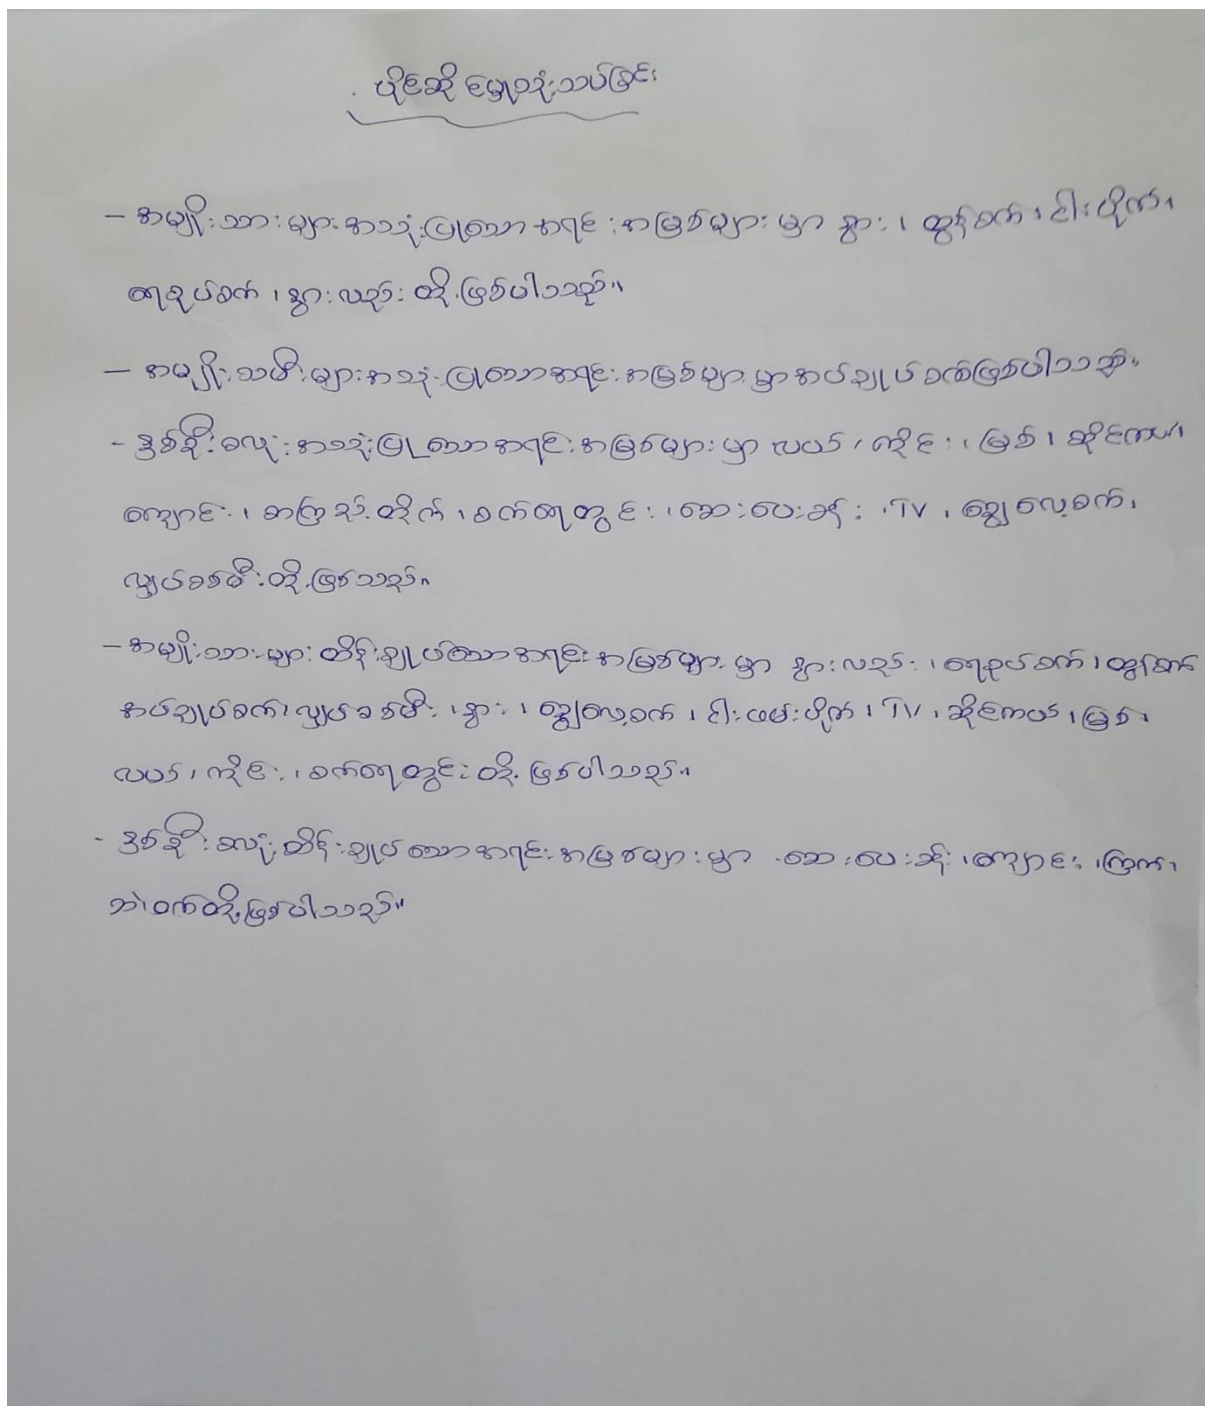 ပိုင်ဆိုင်မှုသုံးသပ်ခြင်း
- အမျိုးသားများအသုံးပြုသောအရင်းအမြစ်များမှာ နွား၊ ထွန်စက်၊ ငါးပိုက်၊
ရေစုပ်စက်၊ နွားလှည်းတို့ဖြစ်ပါသည်။
- အမျိုးသမီးများအသုံးပြုသောအရင်းအမြစ်များမှာအပ်ချုပ်စက်ဖြစ်ပါသည်။
- နှစ်ဦးစလုံးအသုံးပြုသောအရင်းအမြစ်များမှာ လယ်၊ ကိုင်း၊ မြစ်၊ ဆိုင်ကယ်၊
ကျောင်း၊ စာကြည့်တိုက်၊ စက်ရေတွင်း၊ ဆေးပေးခန်း၊ TV၊ ရွှေလှေ့စက်၊
လျှပ်စစ်မီးတို့ဖြစ်သည်။
- အမျိုးသားများထိန်းချုပ်သောအရင်းအမြစ်များမှာ နွားလှည်း၊ ရေစုပ်စက်၊ ထွန်စက်
အပ်ချုပ်စက်၊ လျှပ်စစ်မီး၊ နွား၊ ရွှေလှေ့စက်၊ ငါးဖမ်းပိုက်၊ TV၊ ဆိုင်ကယ်၊ မြစ်၊
လယ်၊ ကိုင်း၊ စက်ရေတွင်းတို့ဖြစ်ပါသည်။
- နှစ်ဦးစလုံးထိန်းချုပ်သောအရင်းအမြစ်များမှာ ဆေးပေးခန်း၊ ကျောင်း၊ ကြက်၊
ဘဲ၊ ဝက်တို့ဖြစ်ပါသည်။